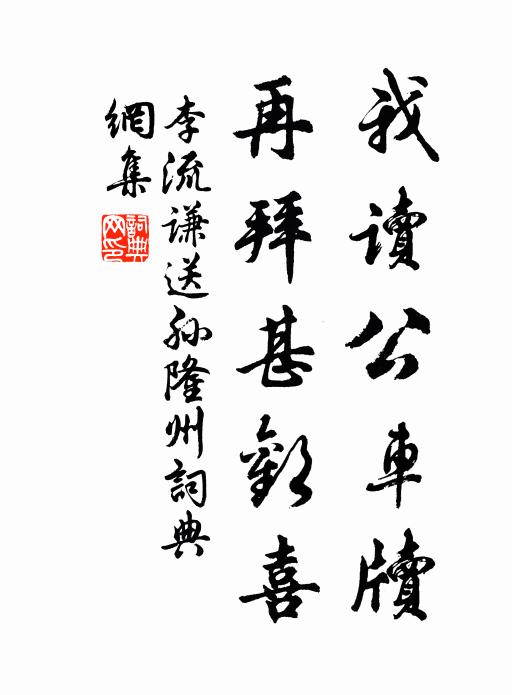 我讀公車牘
再拜甚歡喜
李流謙送孙隆州詞典
網集
詞典网印